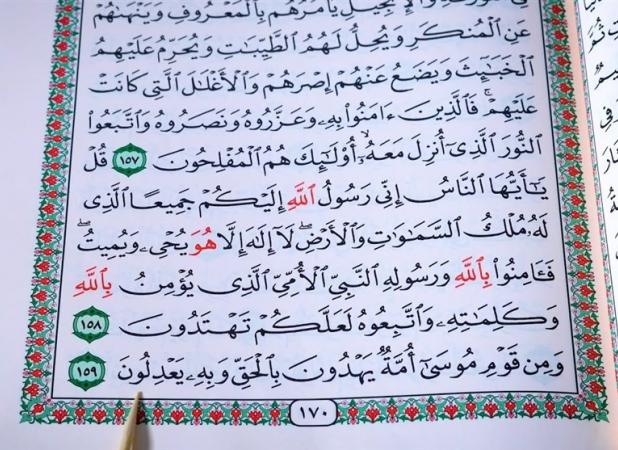 وَالْإِنجِيلِ يَأْمُرُهُم بِالْمَعْرُوفِ وَيَنْهَىٰهُمْ
عَنِ الْمُنكَرِ وَيُحِلُّ لَهُمُ الطَّيِّبَٰتِ وَيُحَرِّمُ عَلَيْهِمُ
الْخَبَٰٓئِثَ وَيَضَعُ عَنْهُمْ إِصْرَهُمْ وَالْأَغْلَٰلَ الَّتِي كَانَتْ
عَلَيْهِمْ ۚ فَالَّذِينَ ءَامَنُوا بِهِۦ وَعَزَّرُوهُ وَنَصَرُوهُ وَاتَّبَعُوا
النُّورَ الَّذِىٓ أُنزِلَ مَعَهُۥٓ ۙ أُو۟لَٰٓئِكَ هُمُ الْمُفْلِحُونَ ١٥٧ قُلْ
يَٰٓأَيُّهَا النَّاسُ إِنِّي رَسُولُ اللَّهِ إِلَيْكُمْ جَمِيعًا الَّذِي
لَهُۥ مُلْكُ السَّمَٰوَٰتِ وَالْأَرْضِ ۖ لَآ إِلَٰهَ إِلَّا هُوَ يُحْيِۦ وَيُمِيتُ ۖ
فَـَٔامِنُوا بِاللَّهِ وَرَسُولِهِ النَّبِيِّ الْأُمِّيِّ الَّذِي يُؤْمِنُ بِاللَّهِ
وَكَلِمَٰتِهِۦ وَاتَّبِعُوهُ لَعَلَّكُمْ تَهْتَدُونَ ١٥٨
وَمِن قَوْمِ مُوسَىٰٓ أُمَّةٌ يَهْدُونَ بِالْحَقِّ وَبِهِۦ يَعْدِلُونَ ١٥٩
١٧٠